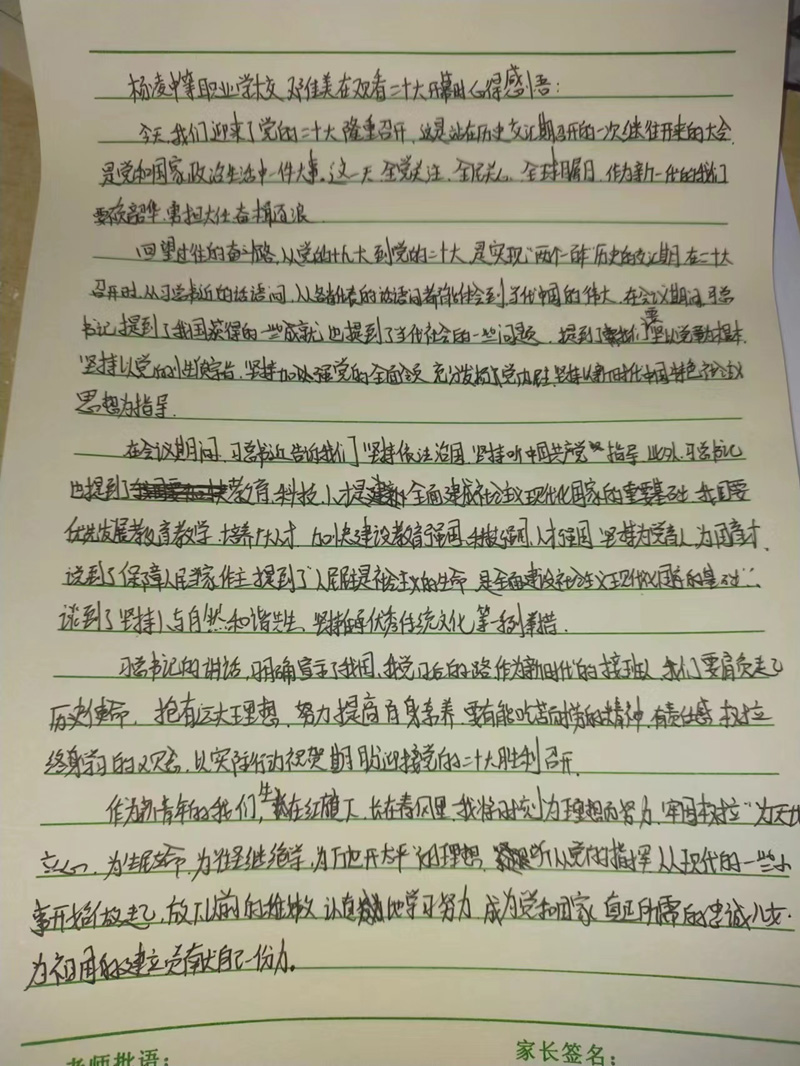 杨凌中等职业学校 邓佳美在观看二十大开幕时心得感悟：
今天，我们迎来了党的二十大隆重召开，这是站在历史交汇期召开的一次继往开来的大会
是党和国家政治生活中一件大事。这一天，全党关注、全民关心、全球瞩目，作为新一代的我们
要不负韶华，勇担大任奋楫百浪
回望过往的奋斗路，从党的十九大到党的二十大，是实现"两个一百年"历史的交汇期，在二十大
召开时，从习总书记的话语间，从各代表的话语间都能体会到，当代中国的伟大，在会议期间，习总
书记提到了我国获得的一些成就，也提到了当代社会的一些问题，提到了我们要坚以党章为根本
坚持以党的性质宗旨，坚持加强党的全面领导，充分发扬党内民主，坚持以新时代中国特色社会主义
思想为指导.
在会议期间，习总书记告诉我们"坚持依法治国，坚持听中国共产党指导，此外，习总书记
也提到了教育、科技、人才是全面建成社会主义现代化国家的重要基础，我国要
优先发展教育教学，培养人才，加快建设教育强国、科技强国、人才强国，坚持为党育人，为国育才，
谈到了保障人民当家作主，提到了"人民民主是社会主义的生命，是全面建设社会主义现代化国家的基础"，
谈到了坚持人与自然和谐共生、坚持优秀传统文化等一系列举措.
习总书记的讲话，明确宣示了我国、我党以后的路，作为新时代的接班人，我们要肩负起
历史使命，抱有远大理想，努力提高自身素养，要有能吃苦耐劳的精神，有责任感，树立
终身学习的观念，以实际行动祝贺期盼迎接党的二十大胜利召开.
作为新青年的我们，生在红旗下，长在春风里，我将时刻为理想而努力，牢固树立"为天地
立心，为生民立命，为往圣继绝学，为万世开太平"的理想，听从党的指挥，从现代的一些小
事开始做起，放下以前的，认真地学习努力，成为党和国家真正所需的忠诚儿女.
为祖国的建立贡献自己一份力。
老师批语：
家长签名：